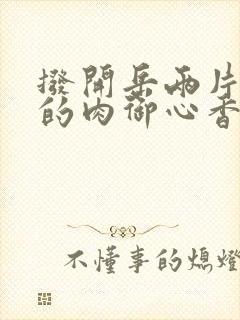 撥開岳兩片
的肉御心香
不懂事的熄燈